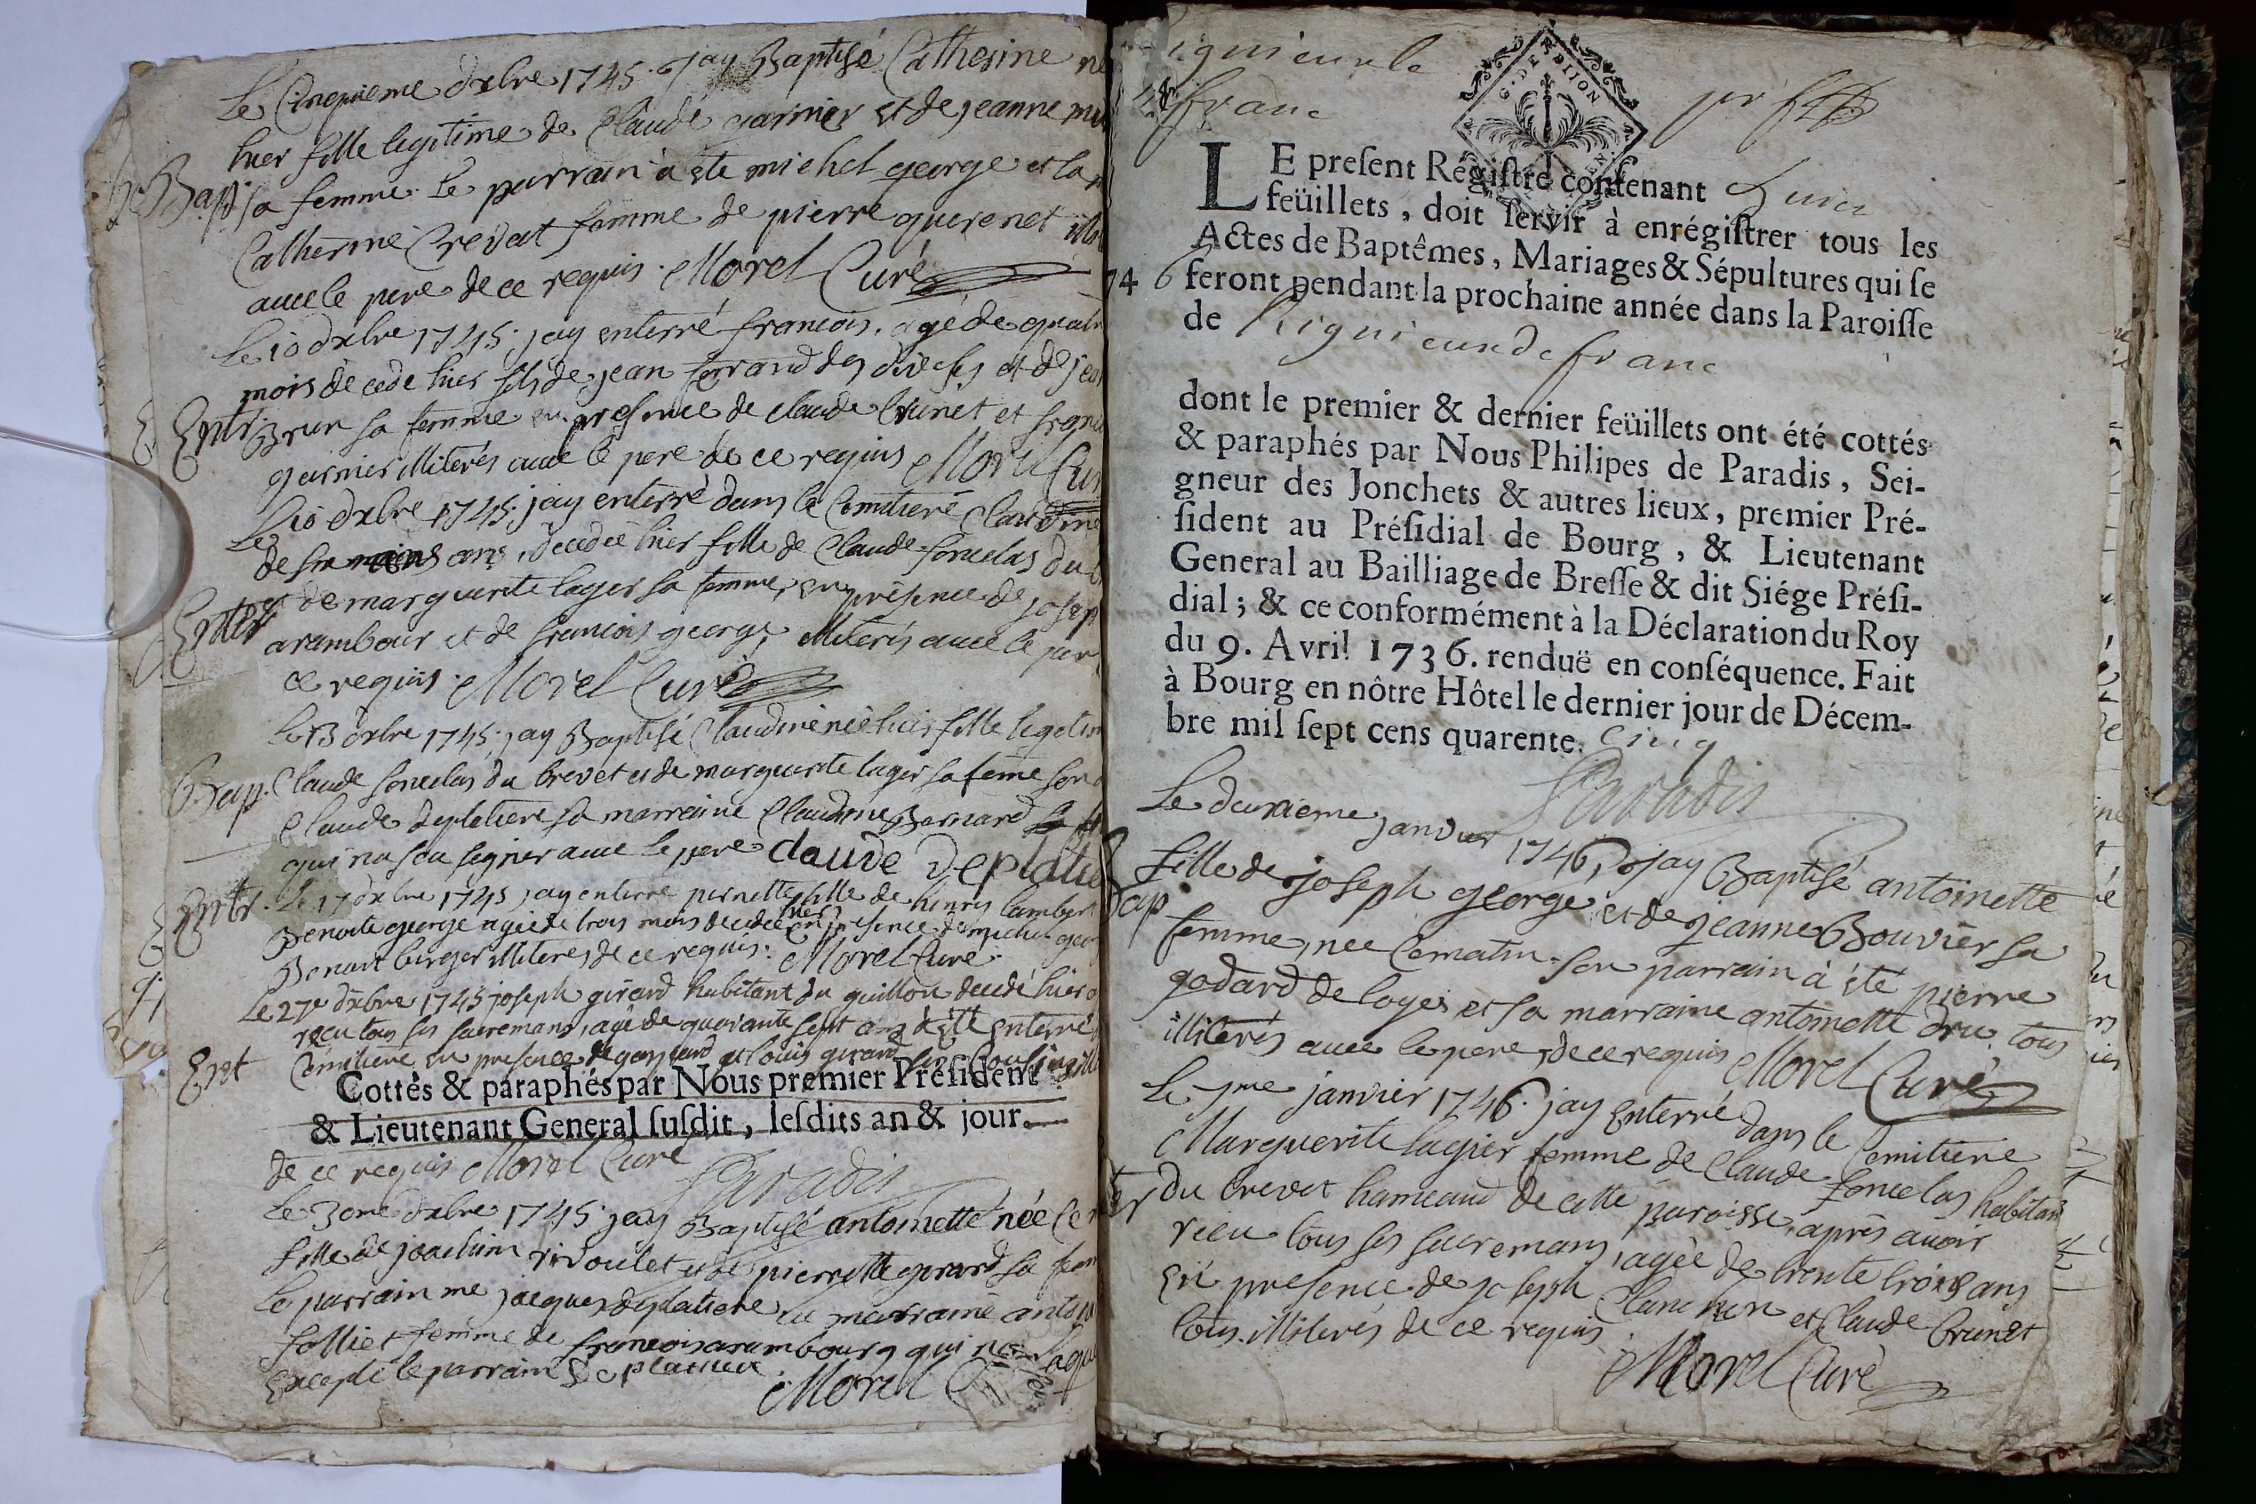 Le Cinquieme dxbre 1745. jay Baptisé Catherine né
hier fille legitime de Claude garnier et de jeanne
Bap. sa femme. Le parrain a ete michel george et la
Catherine Crevat femme de pierre querenet
avec le pere de ce requis. Morel Curé
Le 10 dxbre 1745. jay enterré francois. agé de quatr
mois decede hier fils de jean ferrand des et de jea
Entr Brun sa femme en presence de claude brunet et
garnier illiterés avec le pere de ce requis Morel Cur
Le 10 dxbre 1745. jay enterré dans le Cemitiere Claudine
de six ans, decedée hier fille de Claude fonclas du
Enter et de marguerite lager sa femme, en presence de josep
arambour et de francois george, illiterés avec le per
ce requis. Morel Curé
Le 13 dxbre 1745. jay Baptisé Claudine née hier fille legitim
Bap. Claude fonclas du brevet et de marguerite lager sa feme son
Claude deplatiere sa marraine Claudine Bernard
qui na scu signer avec le pere claude Deplatie
Entr. Le 17 dxbre 1745 jay enterré pernette fille de henry lambert
Benoite george agée de trois mois decedée hier en presence de michel geor
Benoit berger illiteres de ce requis. Morel Curé.
Le 27e dxbre 1745 joseph girard habitant du guillon decedé hier
recu tous ses sacremans, agé de quarante sept ans à eté Enterré
Ent Cemitiere en presence de gaspard et louis girard ses Cousins
Cottés & paraphés par Nous premier Président
& Lieutenant General susdit, lesdits an & jour.
de ce requis Morel Curé
Paradis
Le 30me dxbre 1745. jay Baptisé antoinette née Ce
fille de joachim rivoulet et de pierrette girard sa fem
Le parrain me jacques deplatiere la marraine anto
folliet femme de francois arambourg qui
Excepté le parrain Deplatiere
Morel
franc
LE present Régistre contenant
feüillets, doit servir à enrégistrer tous les
Actes de Baptêmes, Mariages & Sépultures qui se
74 6 feront pendant la prochaine année dans la Paroisse
de Rignieux le franc
dont le premier & dernier feüillets ont été cottés
& paraphés par Nous Philipes de Paradis, Sei-
gneur des Jonchets & autres lieux, premier Pré-
sident au Présidial de Bourg, & Lieutenant
General au Bailliage de Bresse & dit Siége Prési-
dial; & ce conformément à la Déclaration du Roy
du 9. Avril 1736. renduë en conséquence. Fait
à Bourg en nôtre Hôtel le dernier jour de Décem-
bre mil sept cens quarente. Cinq
Paradis
Le deuxieme janvier 1746, jay Baptisé antoinette
Bap fille de joseph george et de jeanne Bouvier sa
femme, née Cematin. son parrain à été pierre
godard de loyes et sa marraine antoinette dru. tous
illiterés avec le pere, de ce requis Morel Curé
Le 7me janvier 1746. jay Enterré dans le Cemitiere
Marguerite lagier femme de Claude foncelas habitan
du Crevet hameaud de cette paroisse, après avoir
recu tous ses sacremans, agée de trente trois ans
En presence de joseph Clanchin et Claude brunet
tous illiterés de ce requis.
Morel Curé